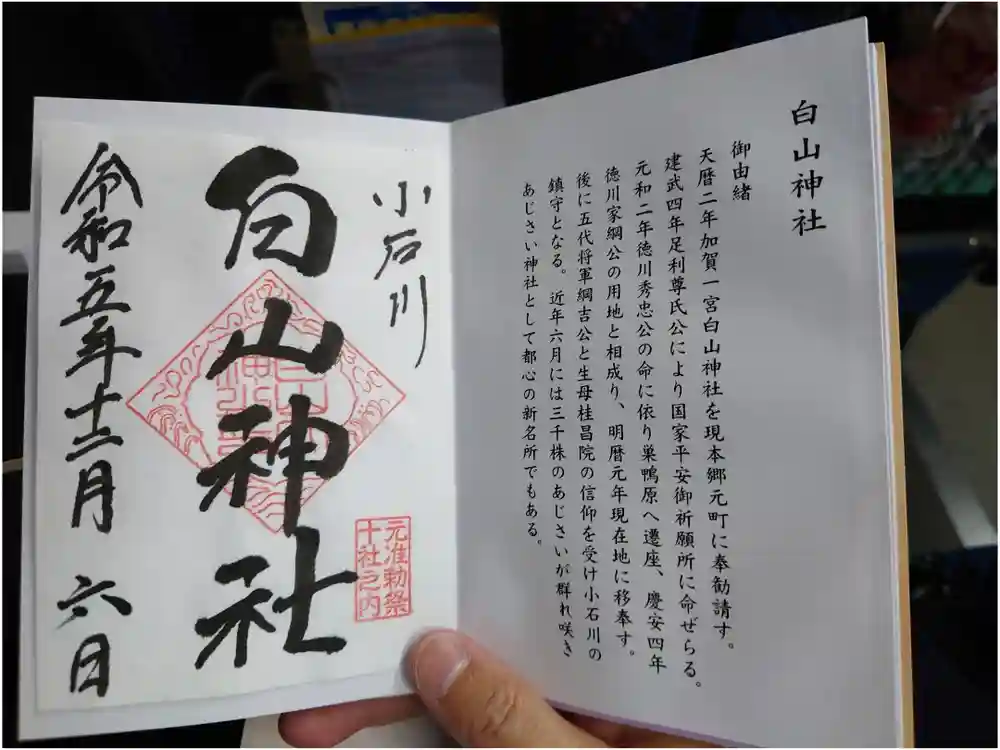 白山神社
御由緒
天暦二年加賀一宮白山神社を現本郷元町に奉勧請す。
建武四年足利尊氏公により国家平安御祈願所に命ぜらる。
元和二年徳川秀忠公の命に依り巣鴨原へ遷座、慶安四年
徳川家綱公の用地と相成り、明暦元年現在地に移奉す。
後に五代将軍綱吉公と生母桂昌院の信仰を受け小石川の
鎮守となる。近年六月には三千株のあじさいが群れ咲き
あじさい神社として都心の新名所でもある。
小石川
白山神社
元准勅祭
十社之内
令和五年十二月 六日